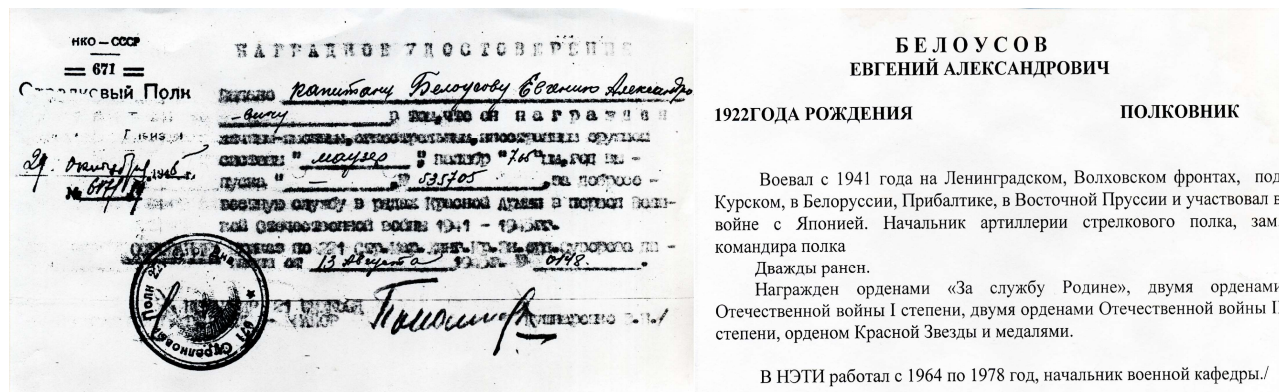 НКО – СССР
671
Стрелковый Полк
29. октября 1945 г.
№
НАГРАДНОЕ УДОСТОВЕРЕНИЕ
капитану Белоусову Евгению Александро
-вичу в том, что он награжден
оружием
системы "маузер", калибр "7,65" мм, год вы-
пуска " — ", № 535705, за добросо-
вестную службу в рядах Красной Армии в период Вели-
кой Отечественной войны 1941 – 1945гг.
приказ по 221
от 13 августа 1945г. № 0148.
БЕЛОУСОВ
ЕВГЕНИЙ АЛЕКСАНДРОВИЧ
1922ГОДА РОЖДЕНИЯ ПОЛКОВНИК
Воевал с 1941 года на Ленинградском, Волховском фронтах, под
Курском, в Белоруссии, Прибалтике, в Восточной Пруссии и участвовал в
войне с Японией. Начальник артиллерии стрелкового полка, зам.
командира полка
Дважды ранен.
Награжден орденами «За службу Родине», двумя орденами
Отечественной войны I степени, двумя орденами Отечественной войны II
степени, орденом Красной Звезды и медалями.
В НЭТИ работал с 1964 по 1978 год, начальник военной кафедры./